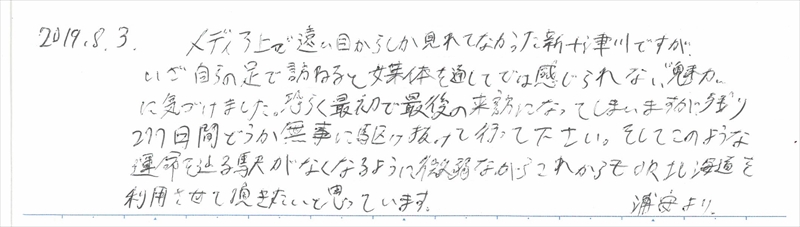 2019.8.3. メディア上で遠い目からしか見れてなかった新十津川ですが、
いざ自らの足で訪ねると媒体を通してでは感じられない"魅力"
に気づけました。恐らく最初で最後の来訪になってしまいますが、残り
277日間どうか無事に駆け抜けて行って下さい。そしてこのような
運命を辿る駅がなくなるように微弱ながらこれからもJR北海道を
利用させて頂きたいと思っています。 浦安より。